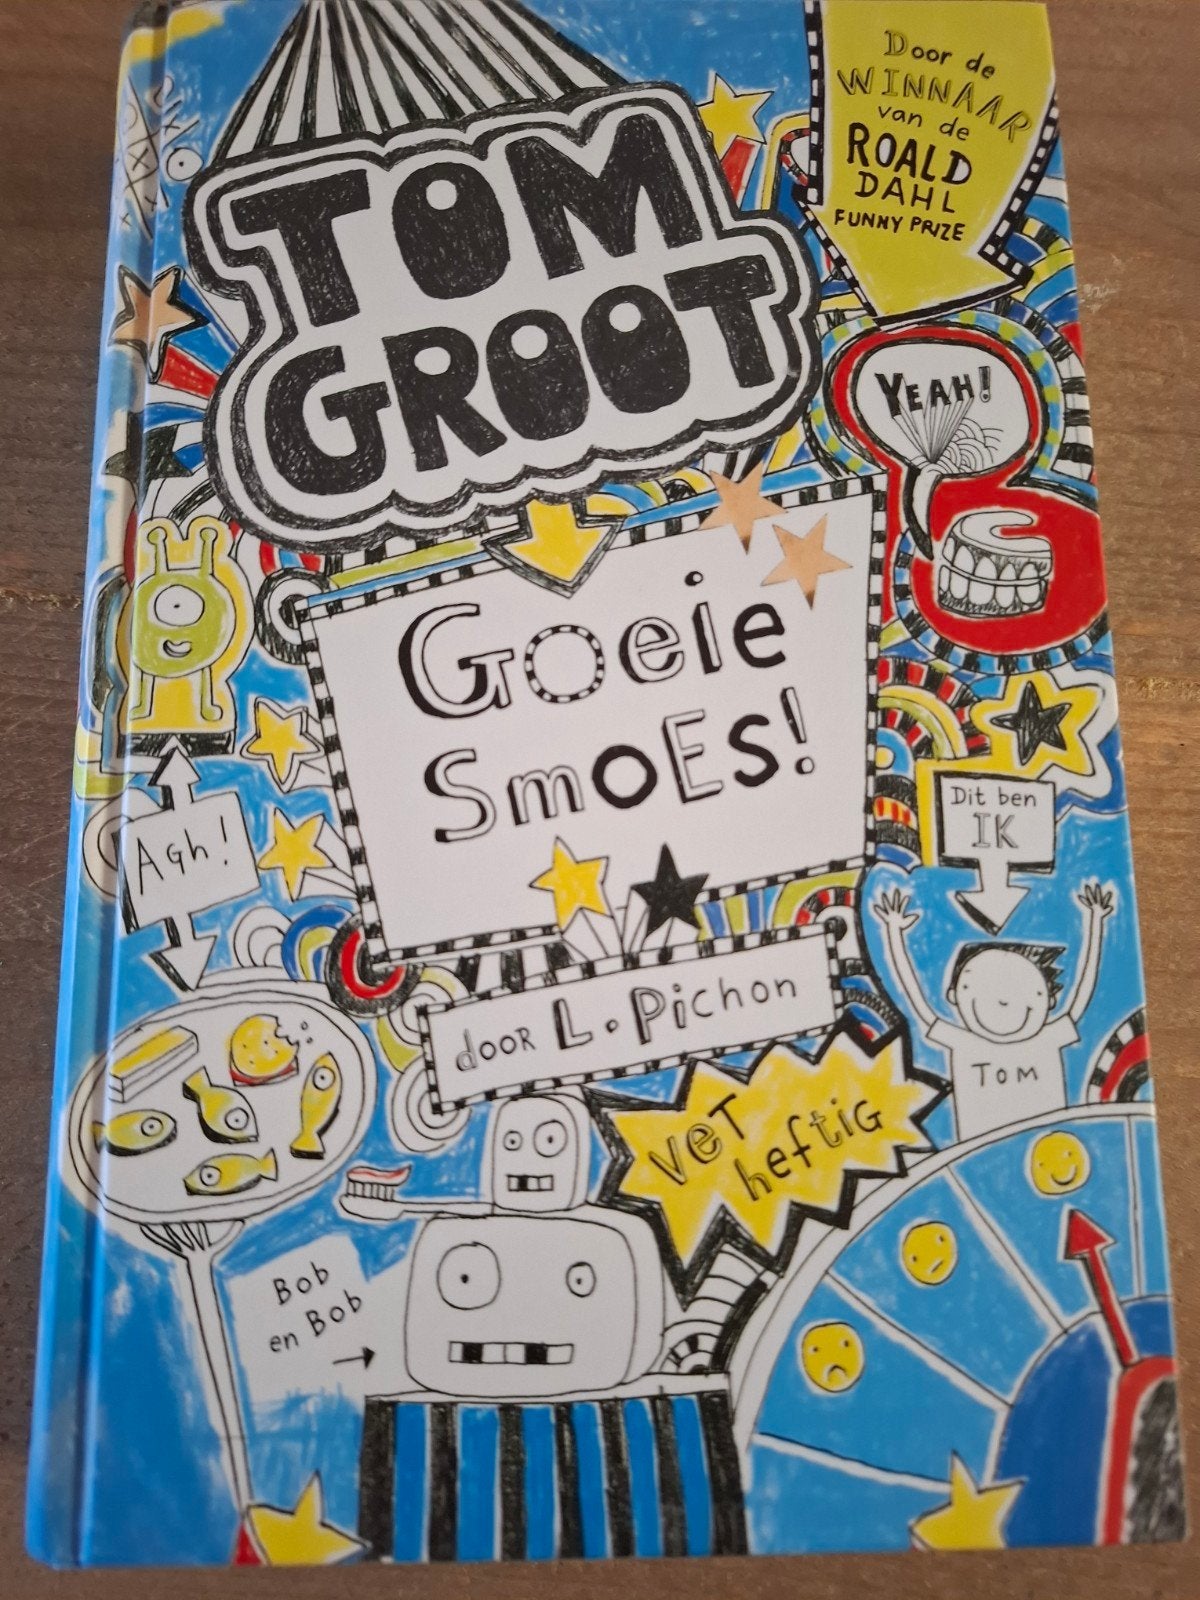 Door de
WINNAAR
van de
ROALD
DAHL
FUNNY PRIZE
TOM
GROOT
YEAH!
Goeie
SmoEs!
Agh!
Dit ben
IK
door L. Pichon
TOM
VeT
heftig
Bob
en Bob